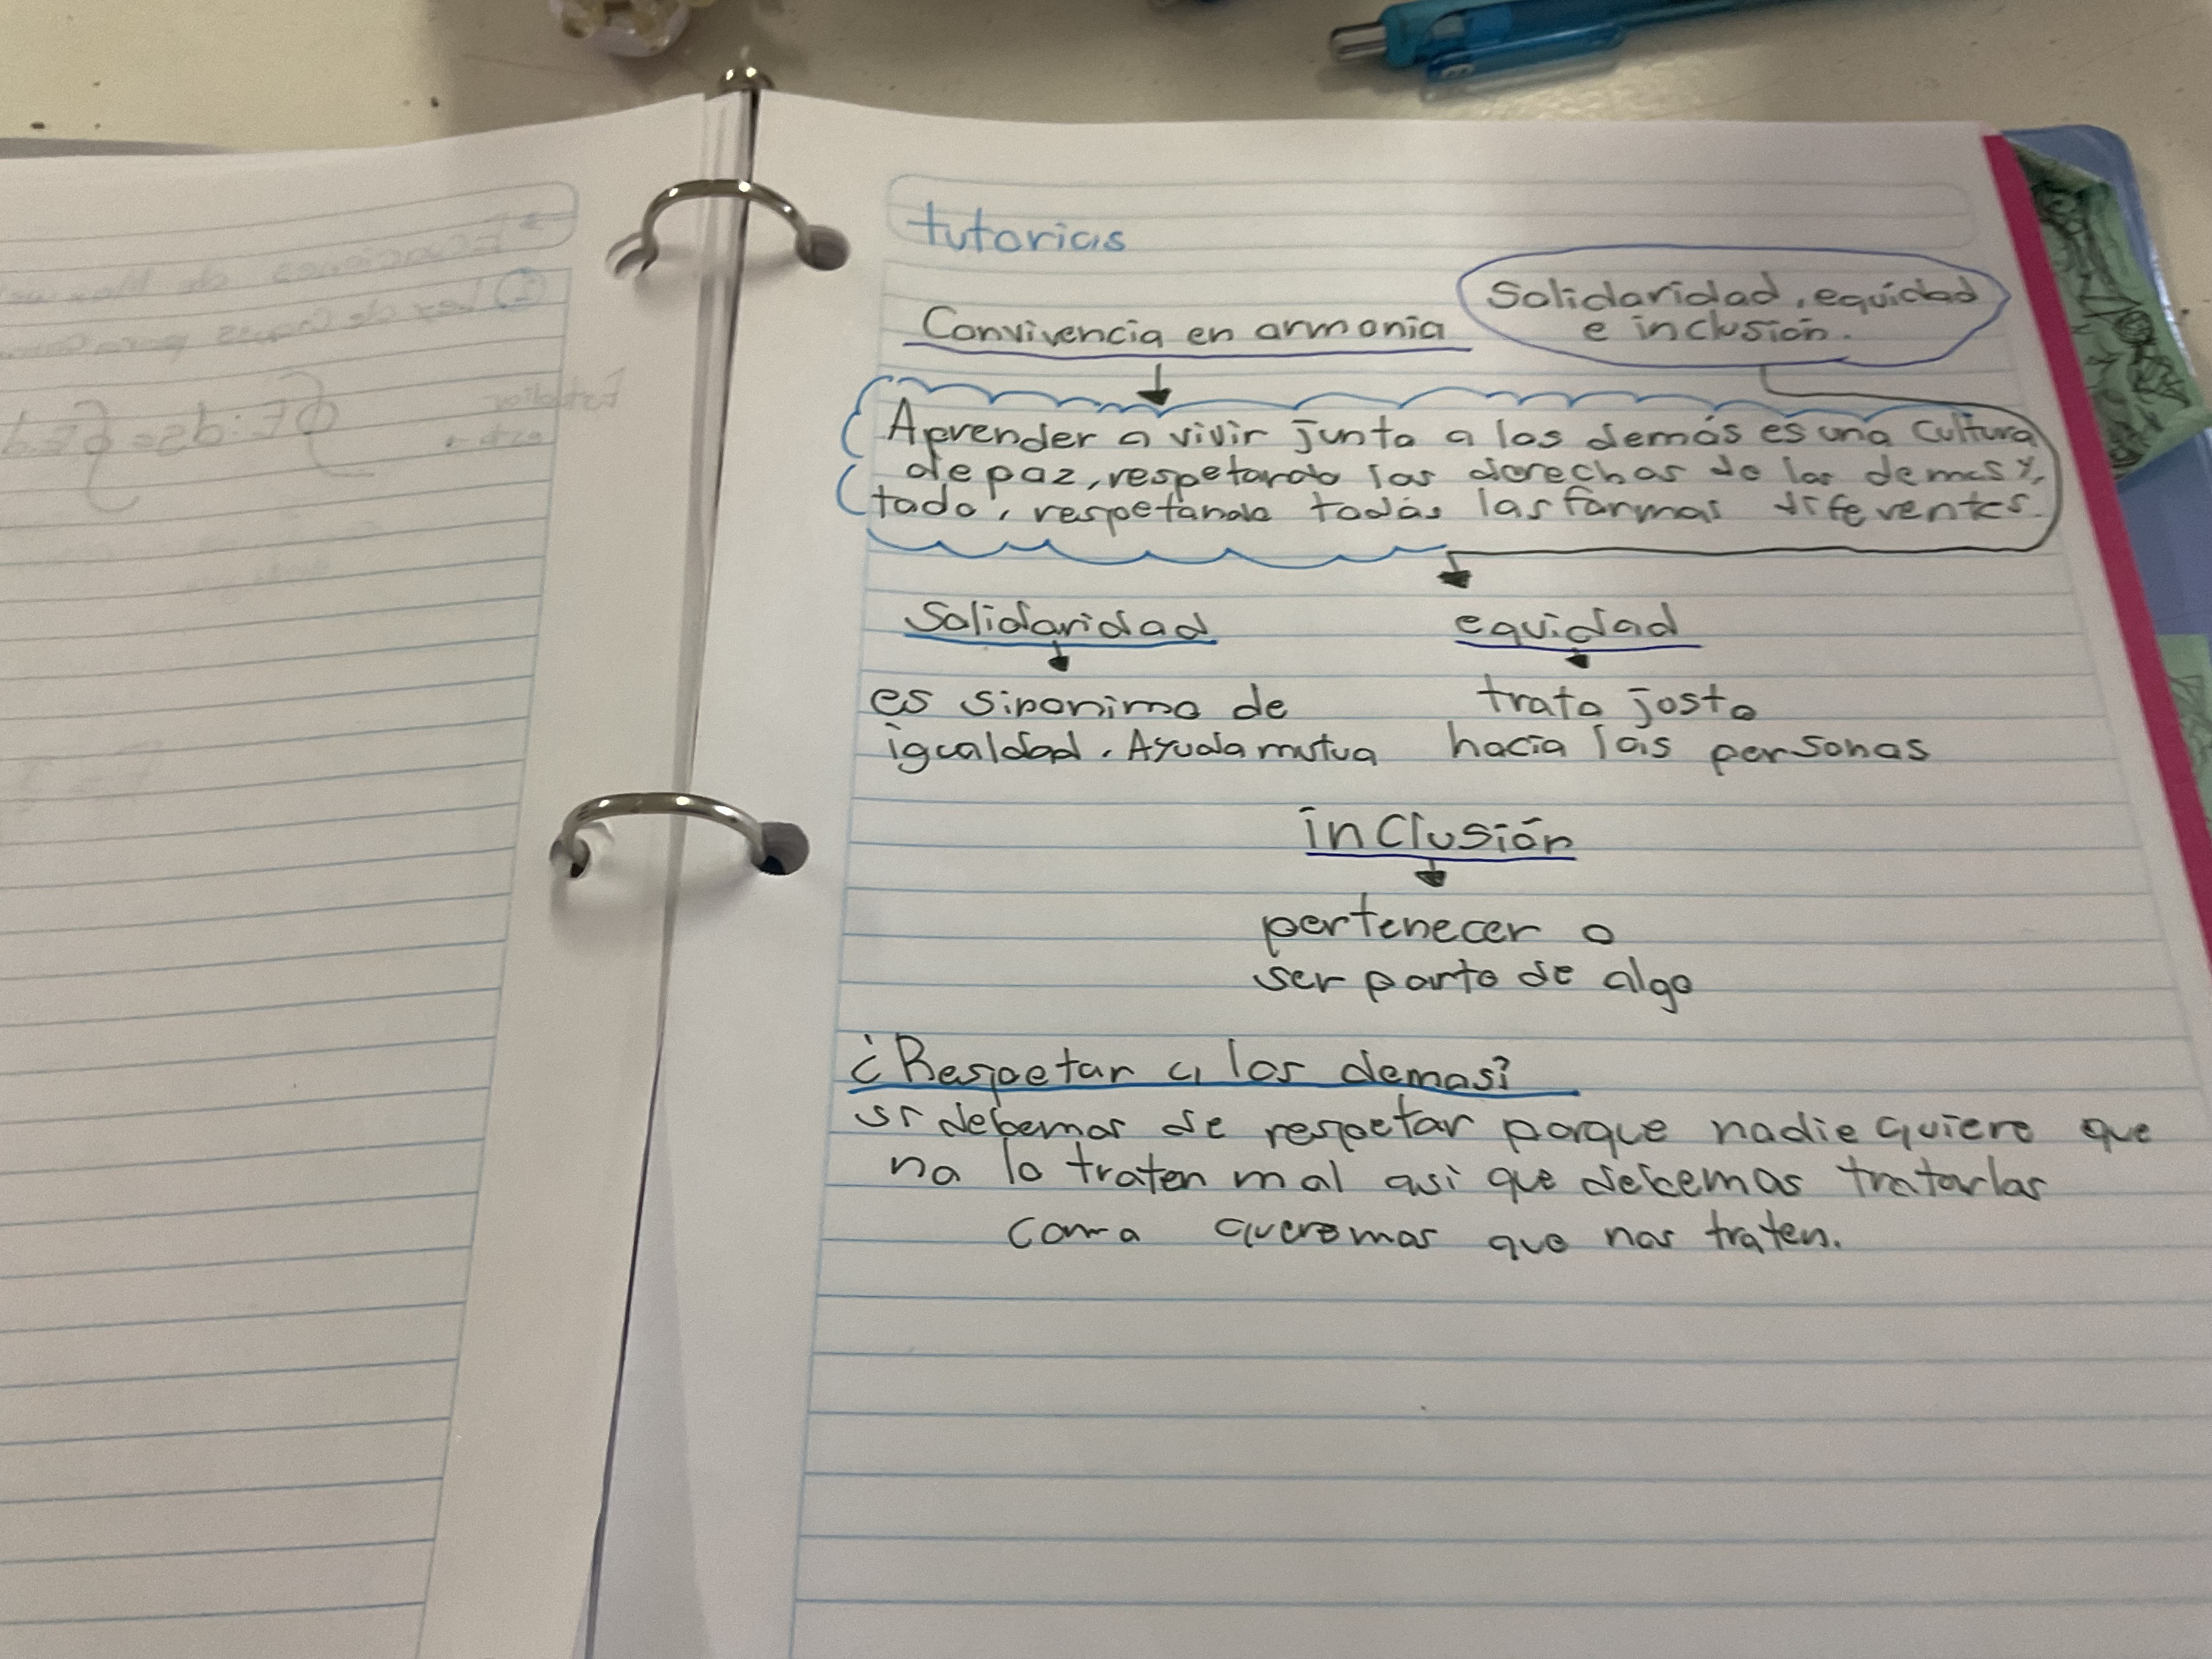 tutorias
Convivencia en armonia
Solidaridad, equidad
e inclusión.
Aprender a vivir junto a los demás es una cultura
de paz, respetando los derechos de los demas y,
todo, respetando todas las formas diferentes.
Solidaridad
es sinonimo de
igualdad. Ayuda mutua
equidad
trato justo
hacia las personas
inclusión
pertenecer o
ser parte de algo
¿Respetar a los demas?
si debemos de respetar porque nadie quiere que
no lo traten mal asi que debemos tratarlos
como queremos que nos traten.